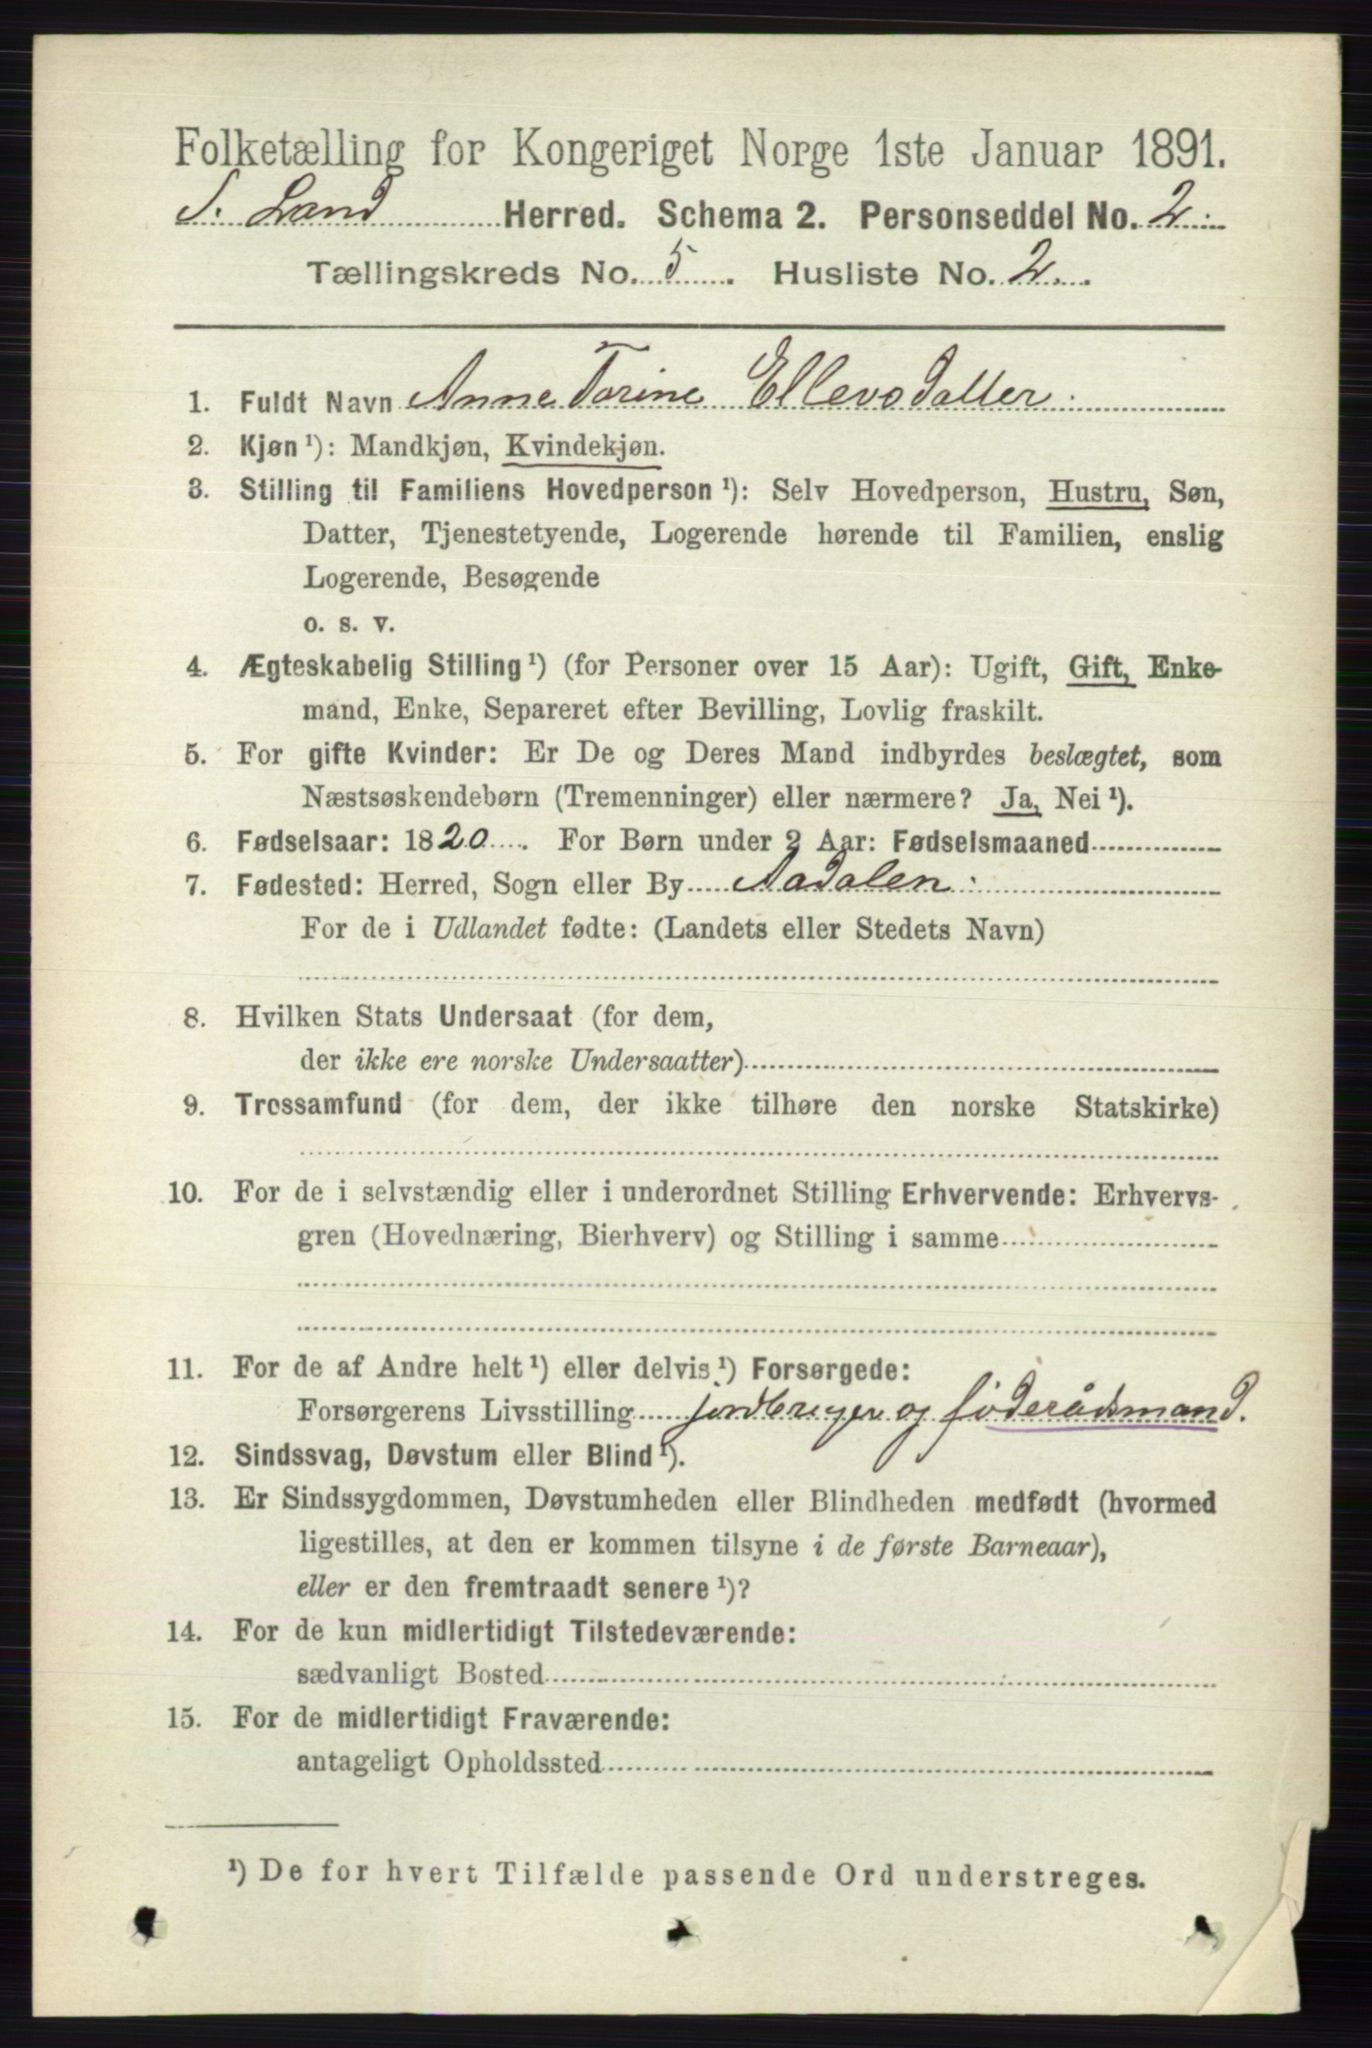 Folketælling for Kongeriget Norge 1ste Januar 1891.
S. Land Herred. Schema 2. Personseddel No. 2.
Tællingskreds No. 5. Husliste No. 2.
1. Fuldt Navn Anne Torine Ellevsdatter.
2. Kjøn ¹): Mandkjøn, Kvindekjøn.
3. Stilling til Familiens Hovedperson ¹): Selv Hovedperson, Hustru, Søn,
Datter, Tjenestetyende, Logerende hørende til Familien, enslig
Logerende, Besøgende
o. s. v.
4. Ægteskabelig Stilling ¹) (for Personer over 15 Aar): Ugift, Gift, Enke-
mand, Enke, Separeret efter Bevilling, Lovlig fraskilt.
5. For gifte Kvinder: Er De og Deres Mand indbyrdes beslægtet, som
Næstsøskendebørn (Tremenninger) eller nærmere? Ja, Nei ¹).
6. Fødselsaar: 1820. For Børn under 2 Aar: Fødselsmaaned
7. Fødested: Herred, Sogn eller By Aadalen.
For de i Udlandet fødte: (Landets eller Stedets Navn)
8. Hvilken Stats Undersaat (for dem,
der ikke ere norske Undersaatter)
9. Trossamfund (for dem, der ikke tilhøre den norske Statskirke)
10. For de i selvstændig eller i underordnet Stilling Erhvervende: Erhvervs-
gren (Hovednæring, Bierhverv) og Stilling i samme
11. For de af Andre helt ¹) eller delvis ¹) Forsørgede:
Forsørgerens Livsstilling jordbruger og föderådsmand.
12. Sindssvag, Døvstum eller Blind ¹).
13. Er Sindssygdommen, Døvstumheden eller Blindheden medfødt (hvormed
ligestilles, at den er kommen tilsyne i de første Barneaar),
eller er den fremtraadt senere ¹)?
14. For de kun midlertidigt Tilstedeværende:
sædvanligt Bosted
15. For de midlertidigt Fraværende:
antageligt Opholdssted
¹) De for hvert Tilfælde passende Ord understreges.